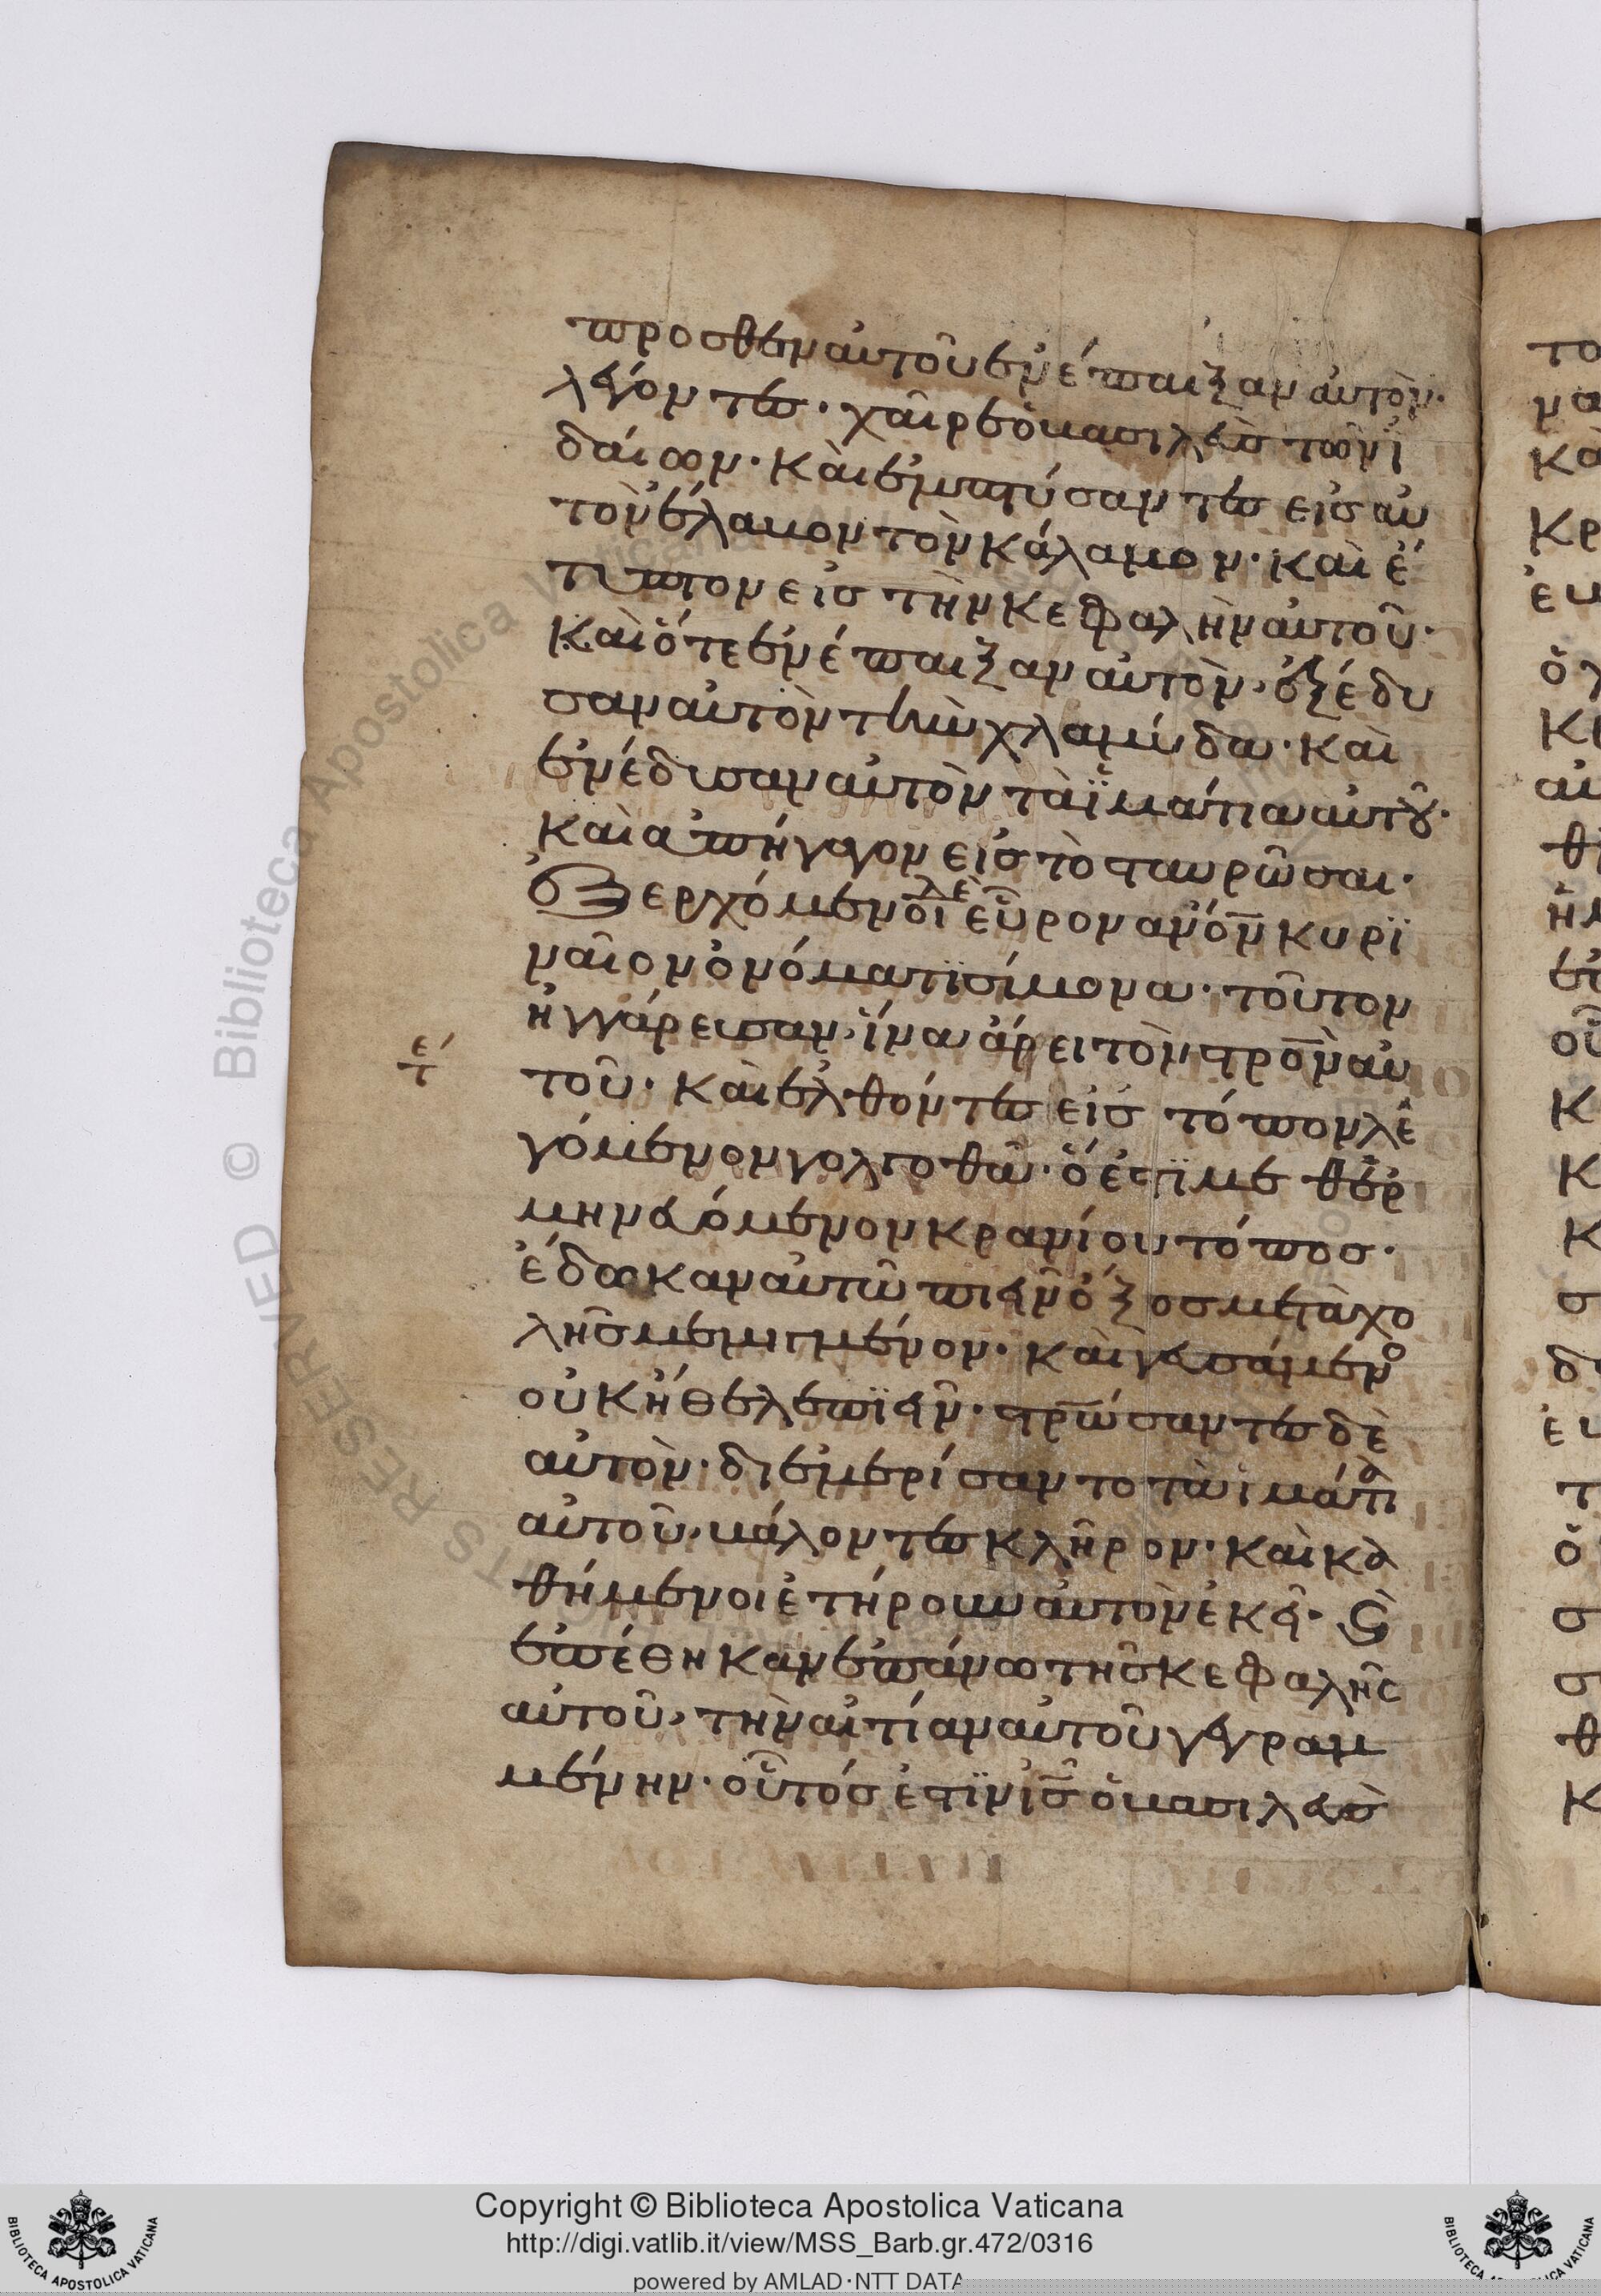 προσθεν αὐτοῦ ἐνέπαιξαν αὐτὸν·
λέγοντες· χαῖρε ὁ βασιλεὺς τῶν ἰ
δαίων· καὶ ἐμπτύσαντες εἰς αὐ
τὸν ἔλαβον τὸν κάλαμον· καὶ ἔ
τυπτον εἰς τὴν κεφαλὴν αὐτοῦ·
καὶ ὅτε ἐνέπαιξαν αὐτὸν, ἐξέδυ
σαν αὐτὸν τὴν χλαμύδα· καὶ
ἐνέδυσαν αὐτὸν τὰ ἱμάτια αὐτοῦ·
καὶ ἀπήγαγον εἰς τὸ σταυρῶσαι·
ἐξερχόμενοι δὲ εὗρον ἀνον κυρι
ναῖον ὀνόματι σίμονα· τοῦτον
ἠγγάρευσαν, ἵνα ἄρει τὸν στρον αὐ
τοῦ· καὶ ἐλθόντες εἰς τόπον λε
γόμενον γολγοθᾶ· ὅ ἐστι μεθερ
μηνευόμενον κρανίου τόπος·
ἔδωκαν αὐτῶ πιεῖν ὄξος μετὰ χο
λῆς μεμιγμένον· καὶ γευσάμενο
οὐκ ἤθελε πιεῖν· στρώσαντες δὲ
αὐτὸν· διεμερίσαντο τὰ ἱμάτια
αὐτοῦ, βάλοντες κλῆρον· καὶ κα
θήμενοι ἐτήρουν αὐτὸν ἐκεῖ· καὶ
ἐπέθηκαν ἐπάνω τῆς κεφαλῆς
αὐτοῦ, τὴν αἰτίαν αὐτοῦ γεγραμ
μένην· οὗτός ἐστιν ἰς ὁ βασιλεὺς
Copyright © Biblioteca Apostolica Vaticana
http://digi.vatlib.it/view/MSS_Barb.gr.472/0316
powered by AMLAD·NTT DATA